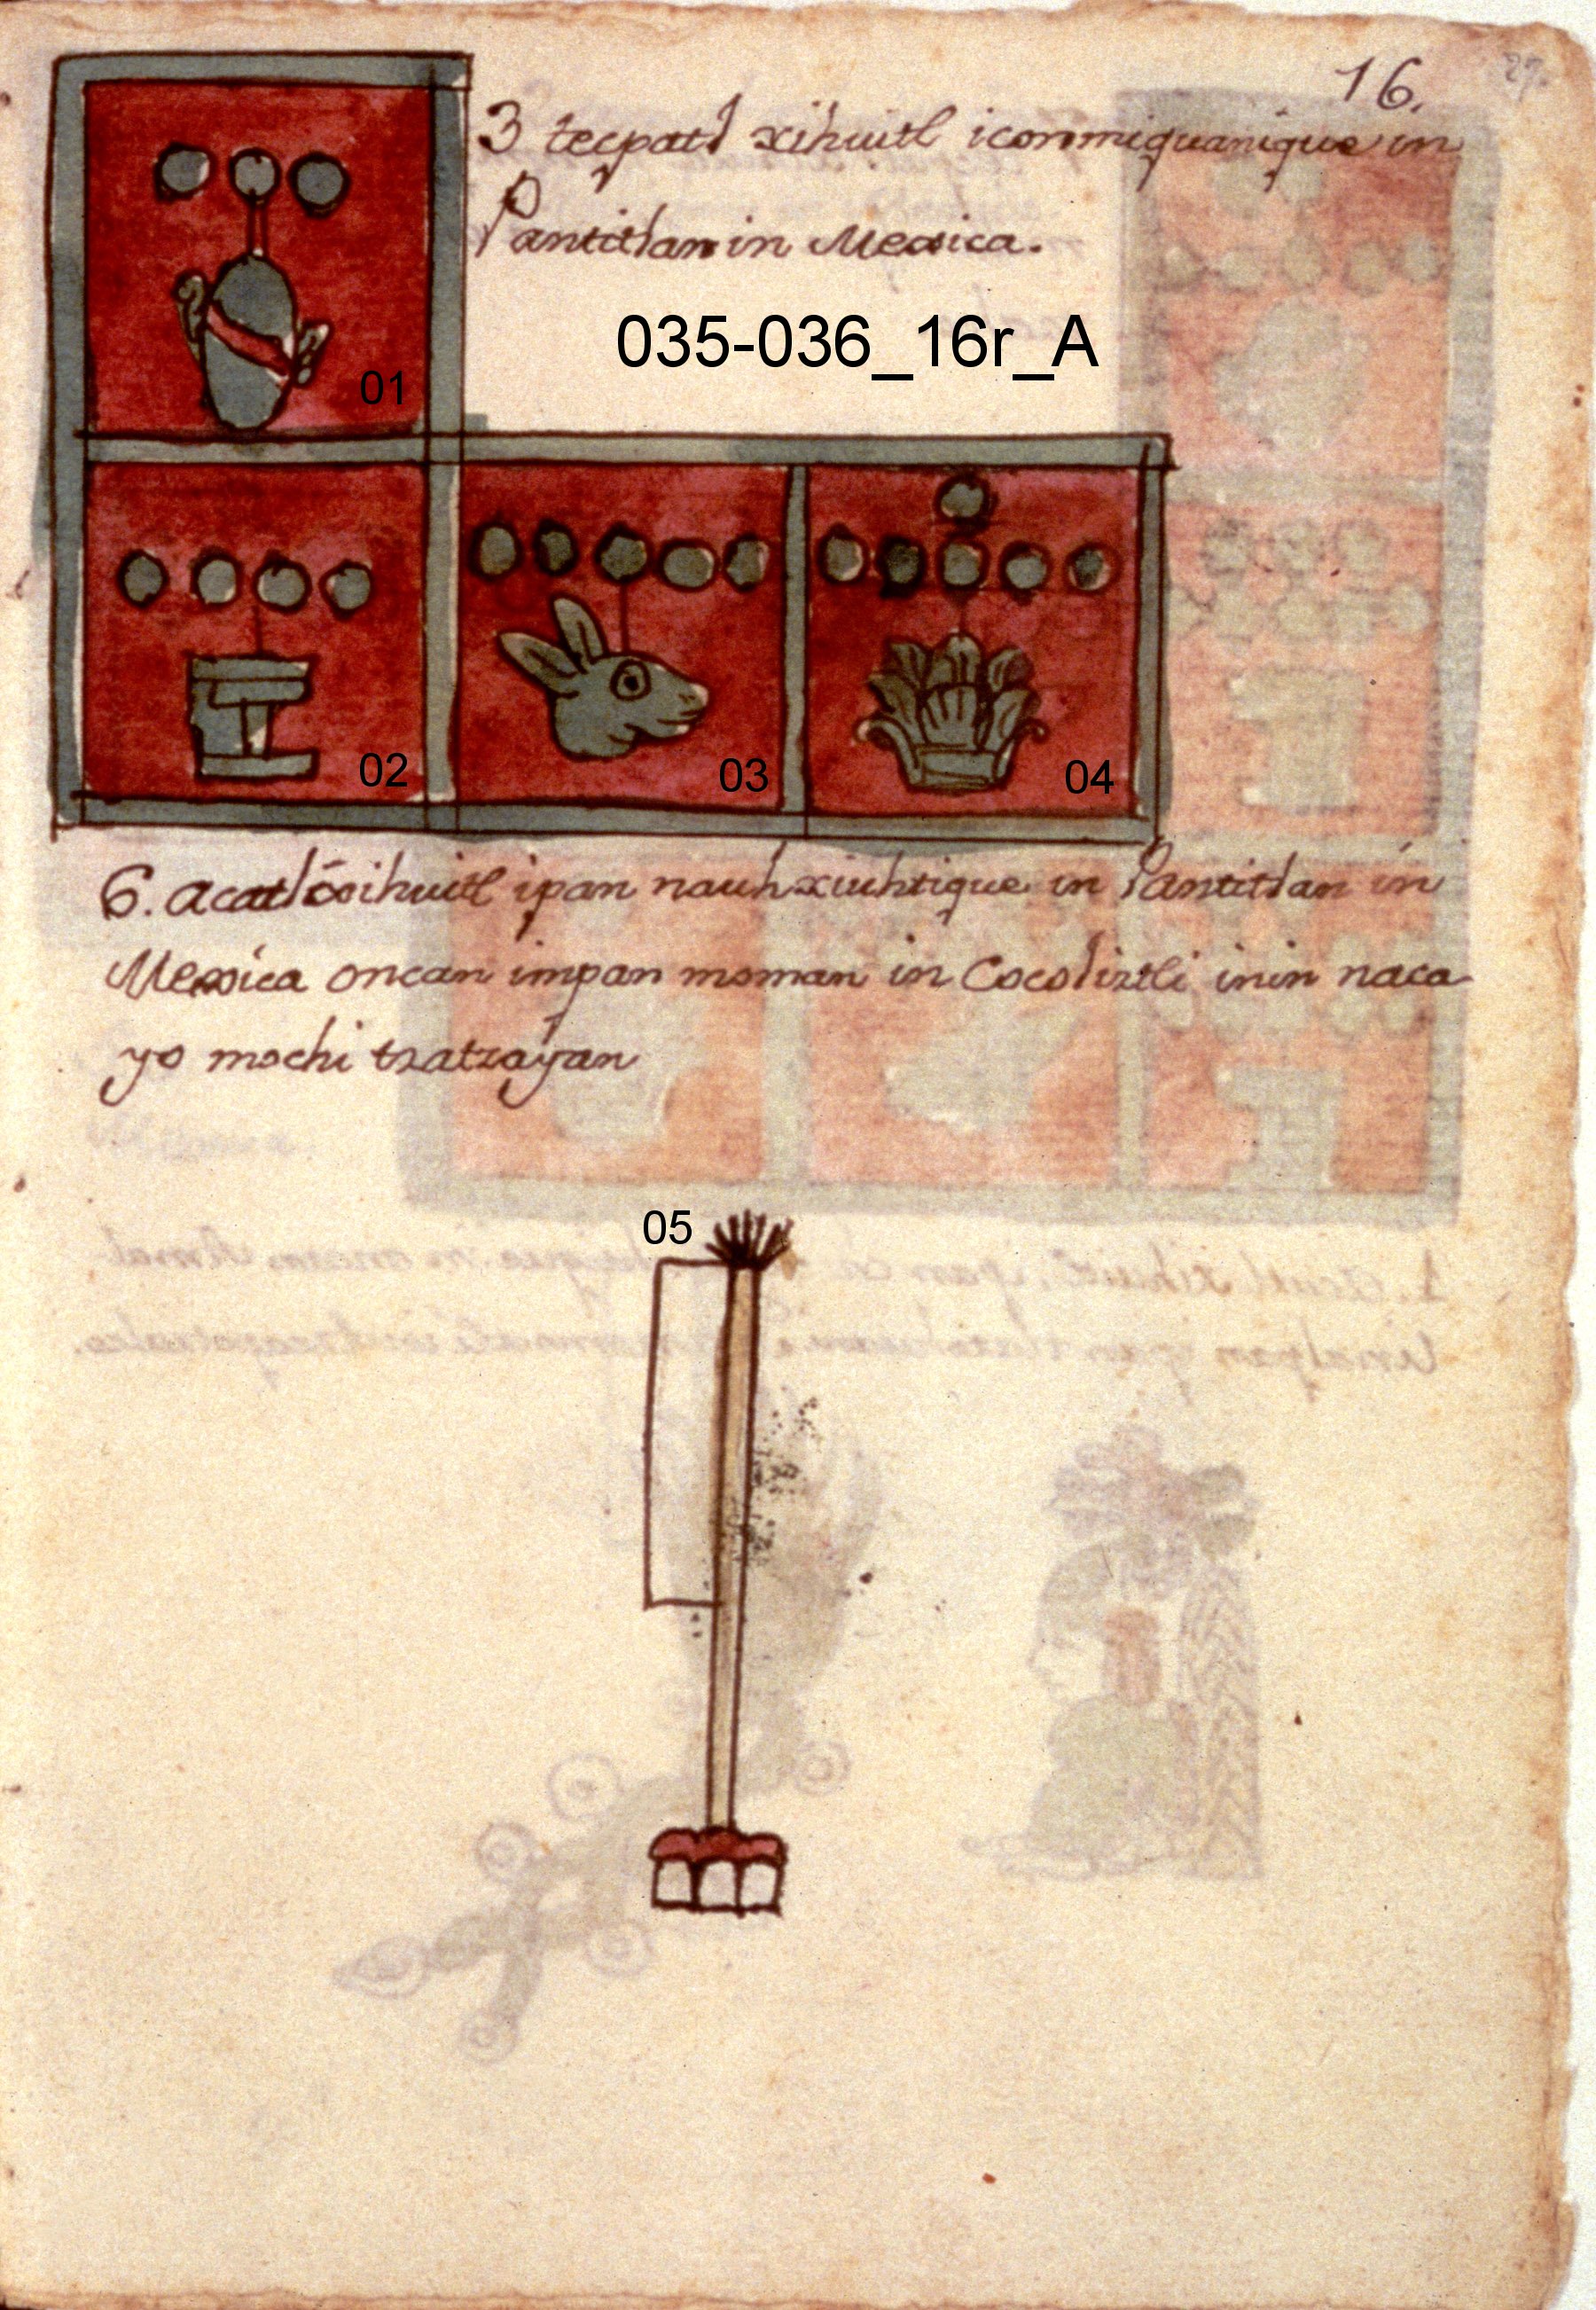 16.
27.
3 tecpatl xihuitl iconmiquanique in
Pantitlan in Mexica.
035-036_16r_A
01
02
03
04
6. acatl xihuitl ipan nauhxiuhtique in Pantitlan in
Mexica oncan impan moman in Cocoliztli inin naca
yo mochi tzatzayan
05